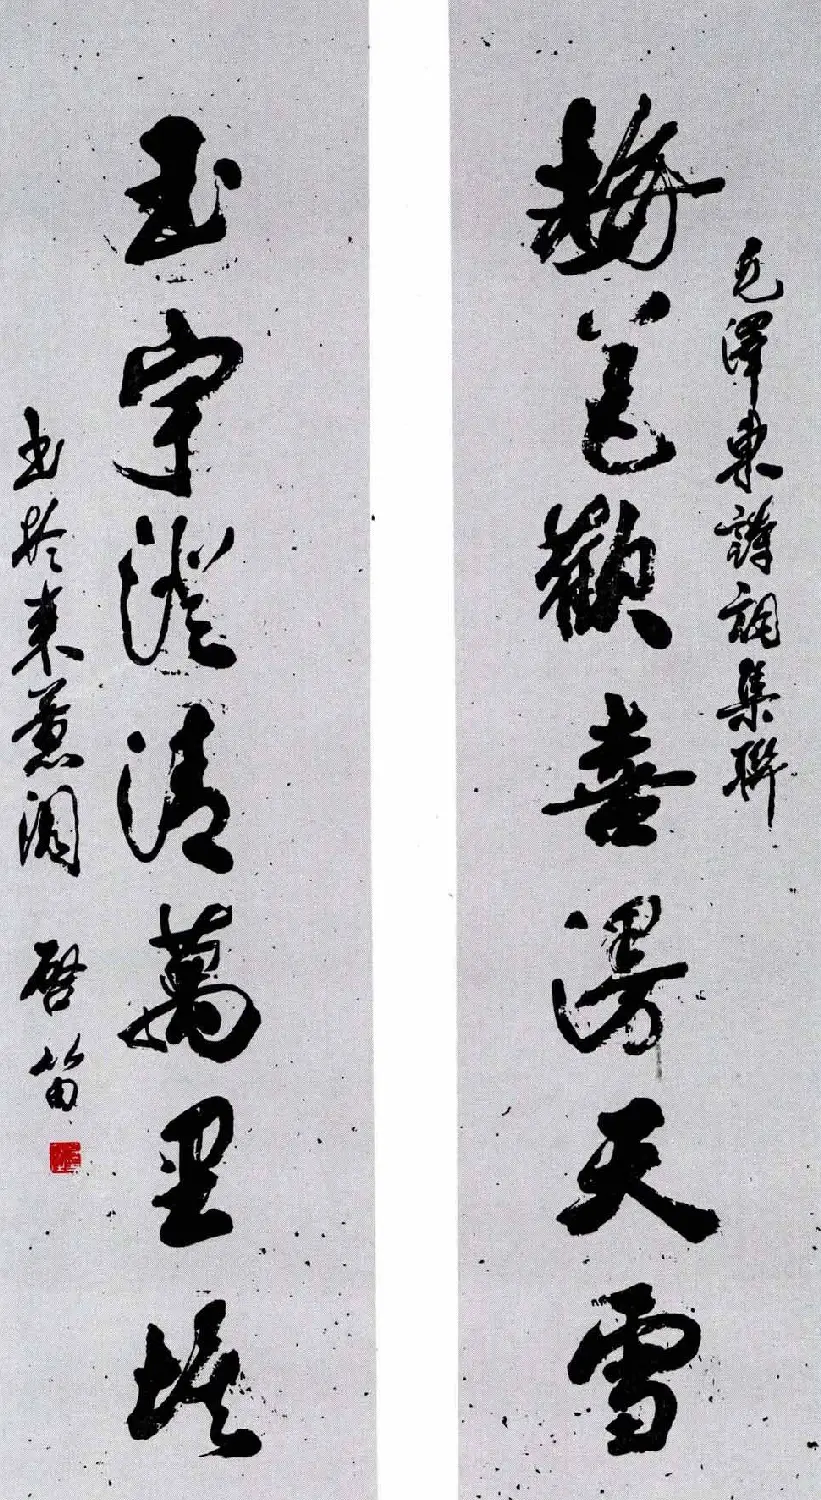 毛澤東詩詞集聯
梅花歡喜漫天雪
玉宇澄清萬里埃
书於東薏園 啓笛